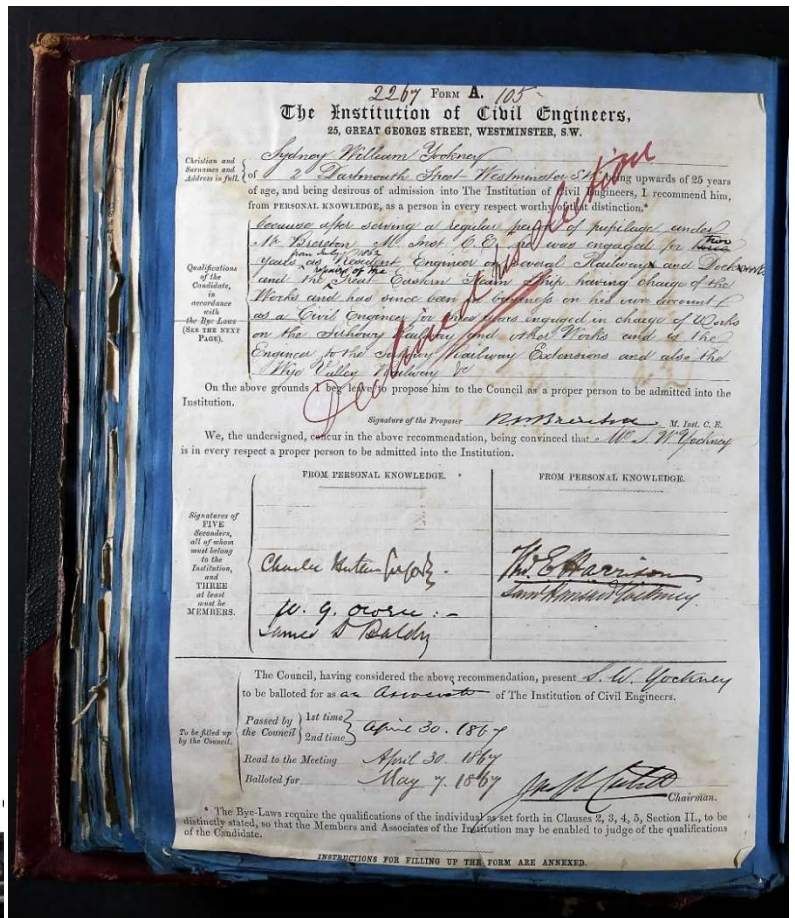 2267 FORM A. 105
The Institution of Civil Engineers,
25, GREAT GEORGE STREET, WESTMINSTER, S.W.
Christian and Surnames and Address in full.
Sydney William Yockney
of 2 Dartmouth Street Westminster S.W. being upwards of 25 years
of age, and being desirous of admission into The Institution of Civil Engineers, I recommend him,
from PERSONAL KNOWLEDGE, as a person in every respect worthy of that distinction.*
Qualifications of the Candidate, in accordance with the Bye-Laws (SEE THE NEXT PAGE).
because after serving a regular of pupilage under
Mr Brereton M. Inst C.E. he was engaged for two
from July 1852
years as Resident Engineer on several Railways and Dock works
repairs of the
and the Great Eastern Steam Ship having charge of the
Works and has since been in business on his own account
as a Civil Engineer for three years engaged in charge of Works
on the Sirhowy Railway and other Works and is the
Engineer to the Sirhowy Railway Extensions and also the
Wye Valley Railway &c
declined his election
On the above grounds I beg leave to propose him to the Council as a proper person to be admitted into the
Institution.
Signature of the Proposer R P Brereton M. Inst. C. E.
We, the undersigned, concur in the above recommendation, being convinced that Mr S. W. Yockney
is in every respect a proper person to be admitted into the Institution.
FROM PERSONAL KNOWLEDGE.
FROM PERSONAL KNOWLEDGE.
Signatures of FIVE Seconders, all of whom must belong to the Institution, and THREE at least must be MEMBERS.
Charles Hutton Gregory
Tho. E. Harrison
Saml Hansard Yockney.
W. G. Owen :-
James D Baldry
The Council, having considered the above recommendation, present S. W. Yockney
to be balloted for as an Associate of The Institution of Civil Engineers.
To be filled up by the Council.
Passed by the Council 1st time 2nd time April 30. 1867
Read to the Meeting April 30. 1867
Balloted for May 7. 1867
Chairman.
* The Bye-Laws require the qualifications of the individual as set forth in Clauses 2, 3, 4, 5, Section II., to be
distinctly stated, so that the Members and Associates of the Institution may be enabled to judge of the qualifications
of the Candidate.
INSTRUCTIONS FOR FILLING UP THE FORM ARE ANNEXED.